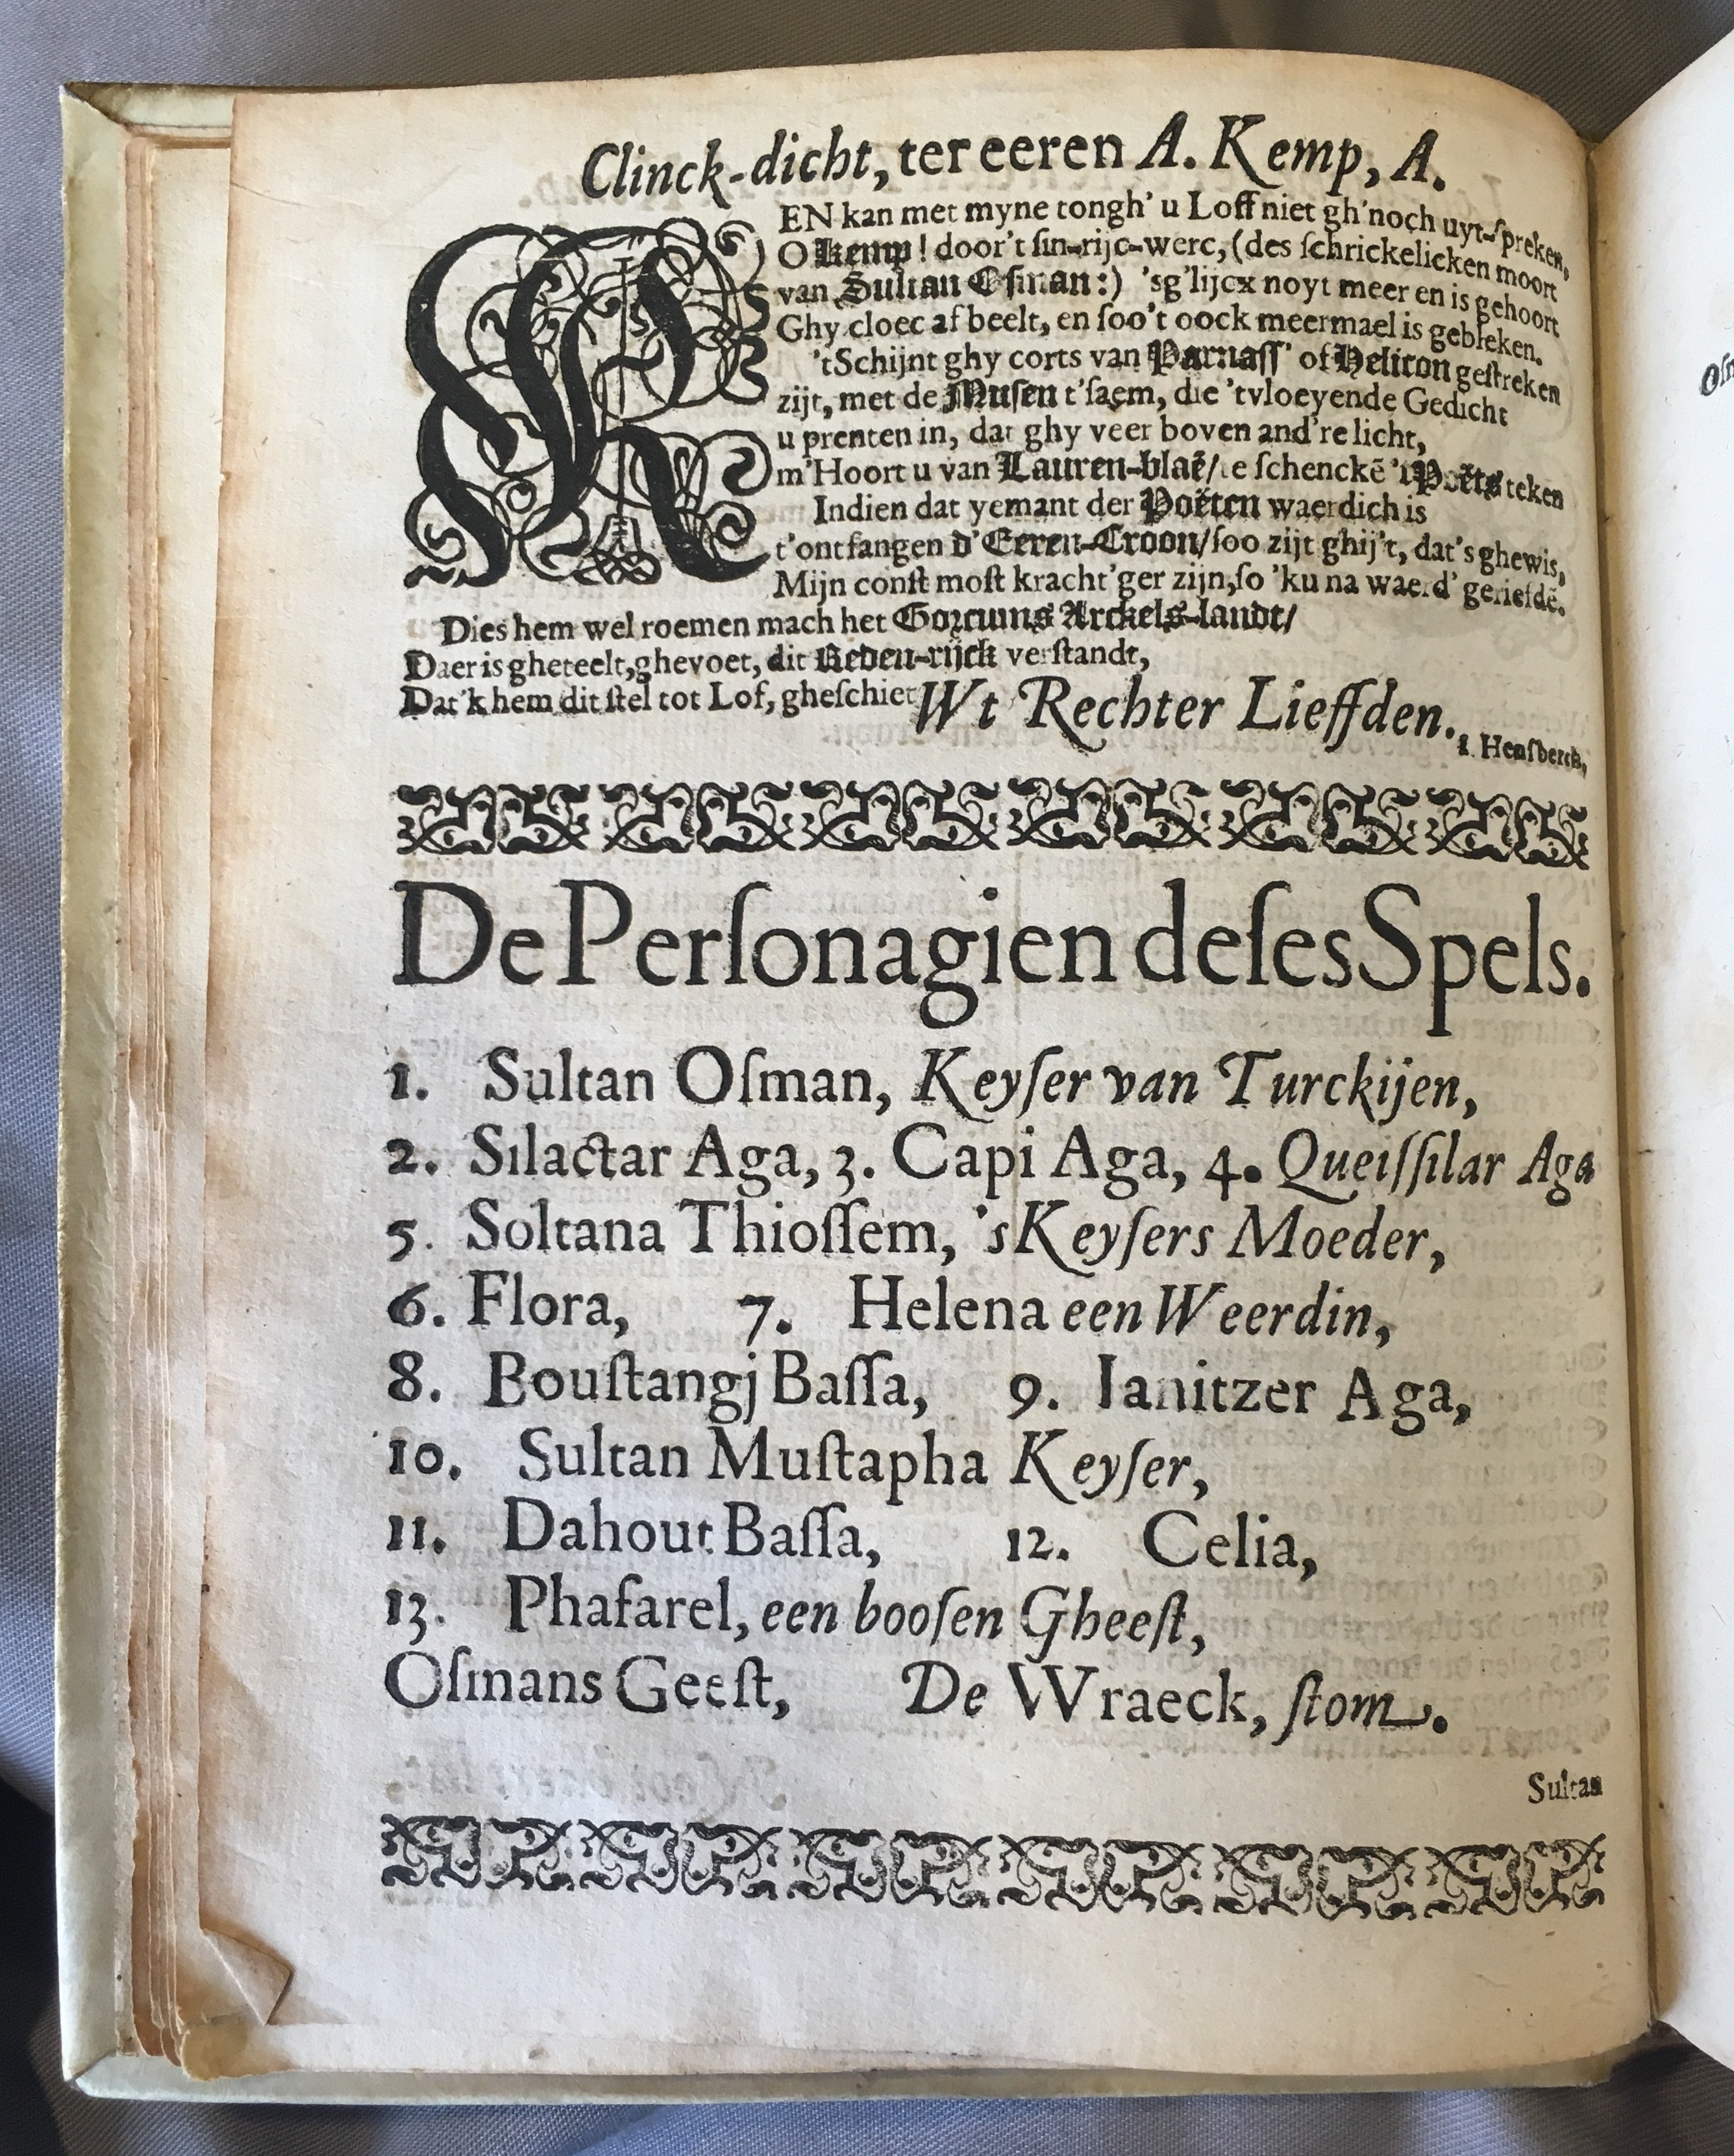 Clinck-dicht, ter eeren A. Kemp, A.
KEN kan met myne tongh' u Loff niet gh'noch uyt-ſpreken,
O Kemp! door't ſin-rijc-werc, (des ſchrickelicken moort
van Sultan Oſman:) 'sg'lijcx noyt meer en is gehoort
Ghy cloec af beelt, en ſoo't oock meermael is gebleken.
'tSchijnt ghy corts van Parnaſſ' of Helicon geſtreken
zijt, met de Muſen t'ſaem, die 'tvloeyende Gedicht
u prenten in, dat ghy veer boven and're licht,
m'Hoort u van Lauren-blaẽ/te ſchenckẽ 'tPoëts teken
Indien dat yemant der Poëten waerdich is
t'ontfangen d'Eeren-Croon/ſoo zijt ghij't, dat's ghewis,
Mijn conſt moſt kracht'ger zijn,ſo 'ku na waerd' geriefdẽ.
Dies hem wel roemen mach het Gorcums Arckels-landt/
Daer is gheteelt,ghevoet, dit Reden-rijck verſtandt,
Dat'k hem dit ſtel tot Lof, gheſchiet Wt Rechter Lieffden.
I. Henſberch,
De Perſonagien deſes Spels.
1. Sultan Oſman, Keyſer van Turckijen,
2. Silactar Aga, 3. Capi Aga, 4. Queiſſilar Aga
5. Soltana Thioſſem, 'sKeyſers Moeder,
6. Flora, 7. Helena een Weerdin,
8. Bouſtangj Baſſa, 9. Ianitzer Aga,
10. Sultan Muſtapha Keyſer,
11. Dahout Baſſa, 12. Celia,
13. Phafarel, een booſen Gheeſt,
Oſmans Geeſt, De Wraeck, ſtom.
Sultan